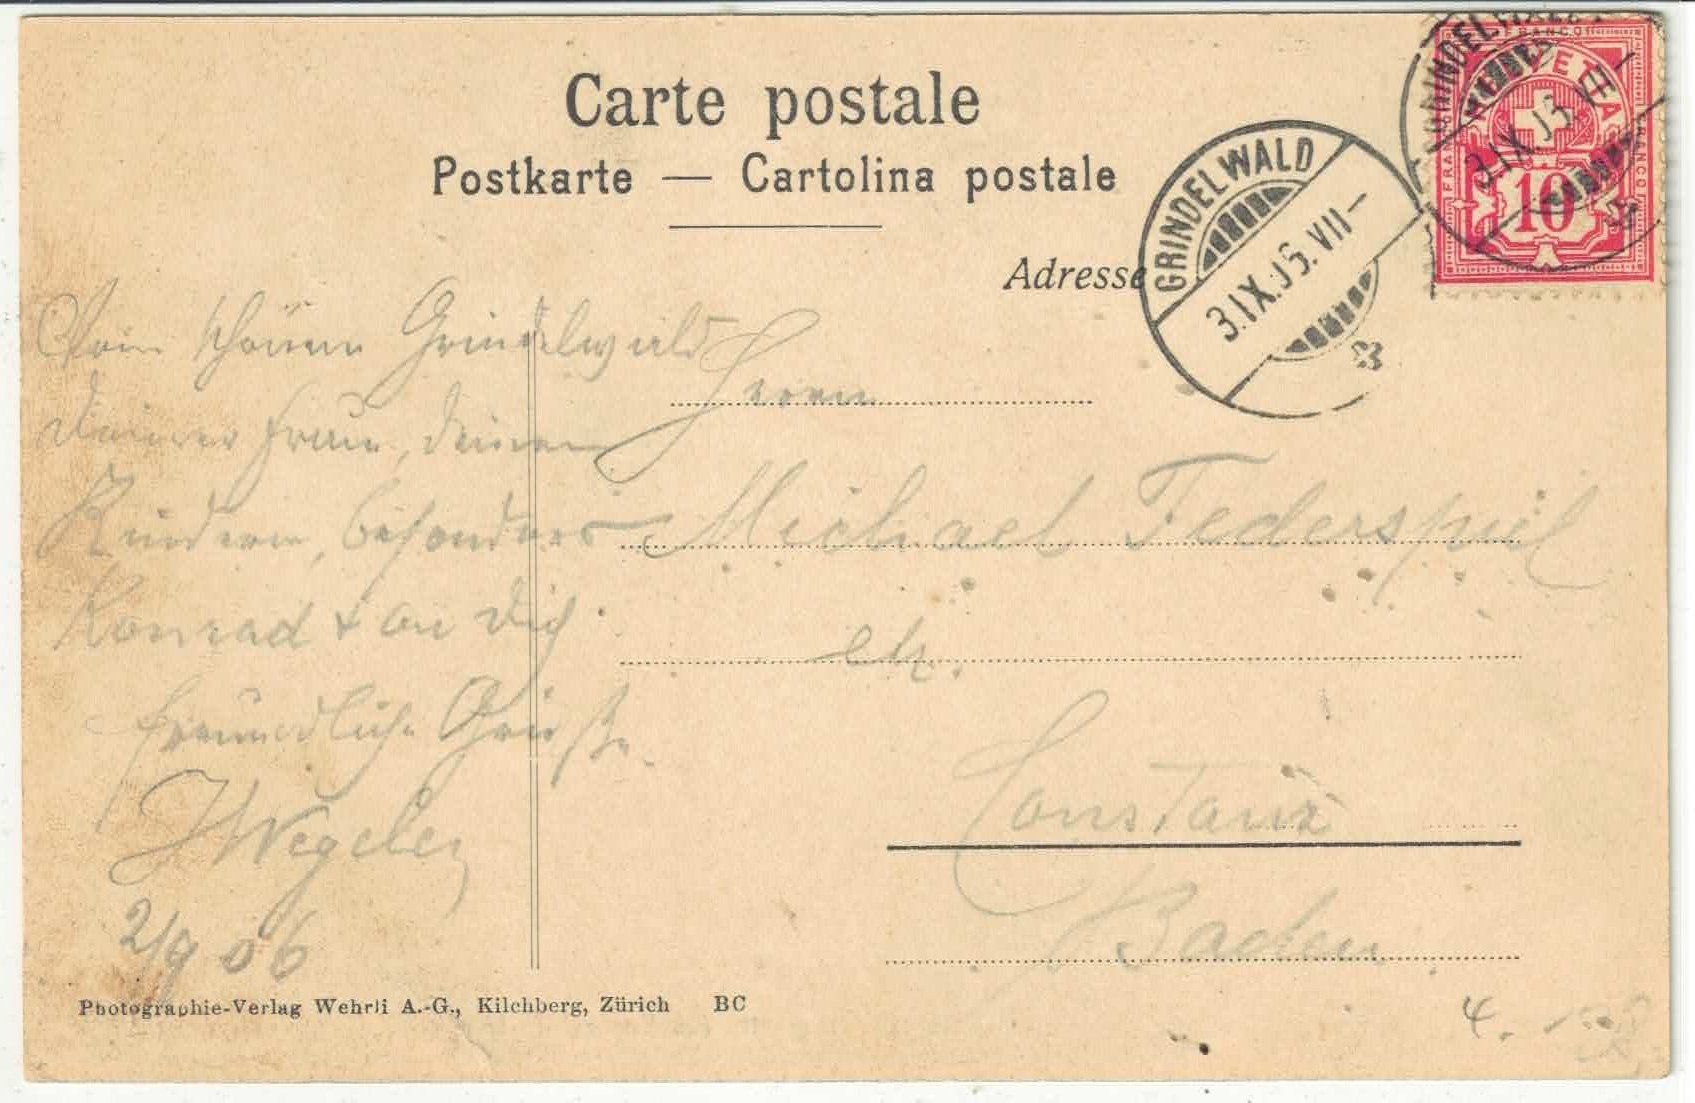 Carte postale
Postkarte — Cartolina postale
Adresse
GRINDELWALD
3.IX.06.VII–
GRINDELWALD
3.IX.06.VII
FRANCO
HELVETIA
FRANCO
FRANCO
10
Vom schönen Grindelwald
Deiner Frau, deinen
Kindern, besonders
Konrad + an Dich
freundliche Grüße.
JWegeler
2/9 06
Herrn
Michael Federspiel
etc.
Constanz
Baden
Photographie-Verlag Wehrli A.-G., Kilchberg, Zürich BC
4.